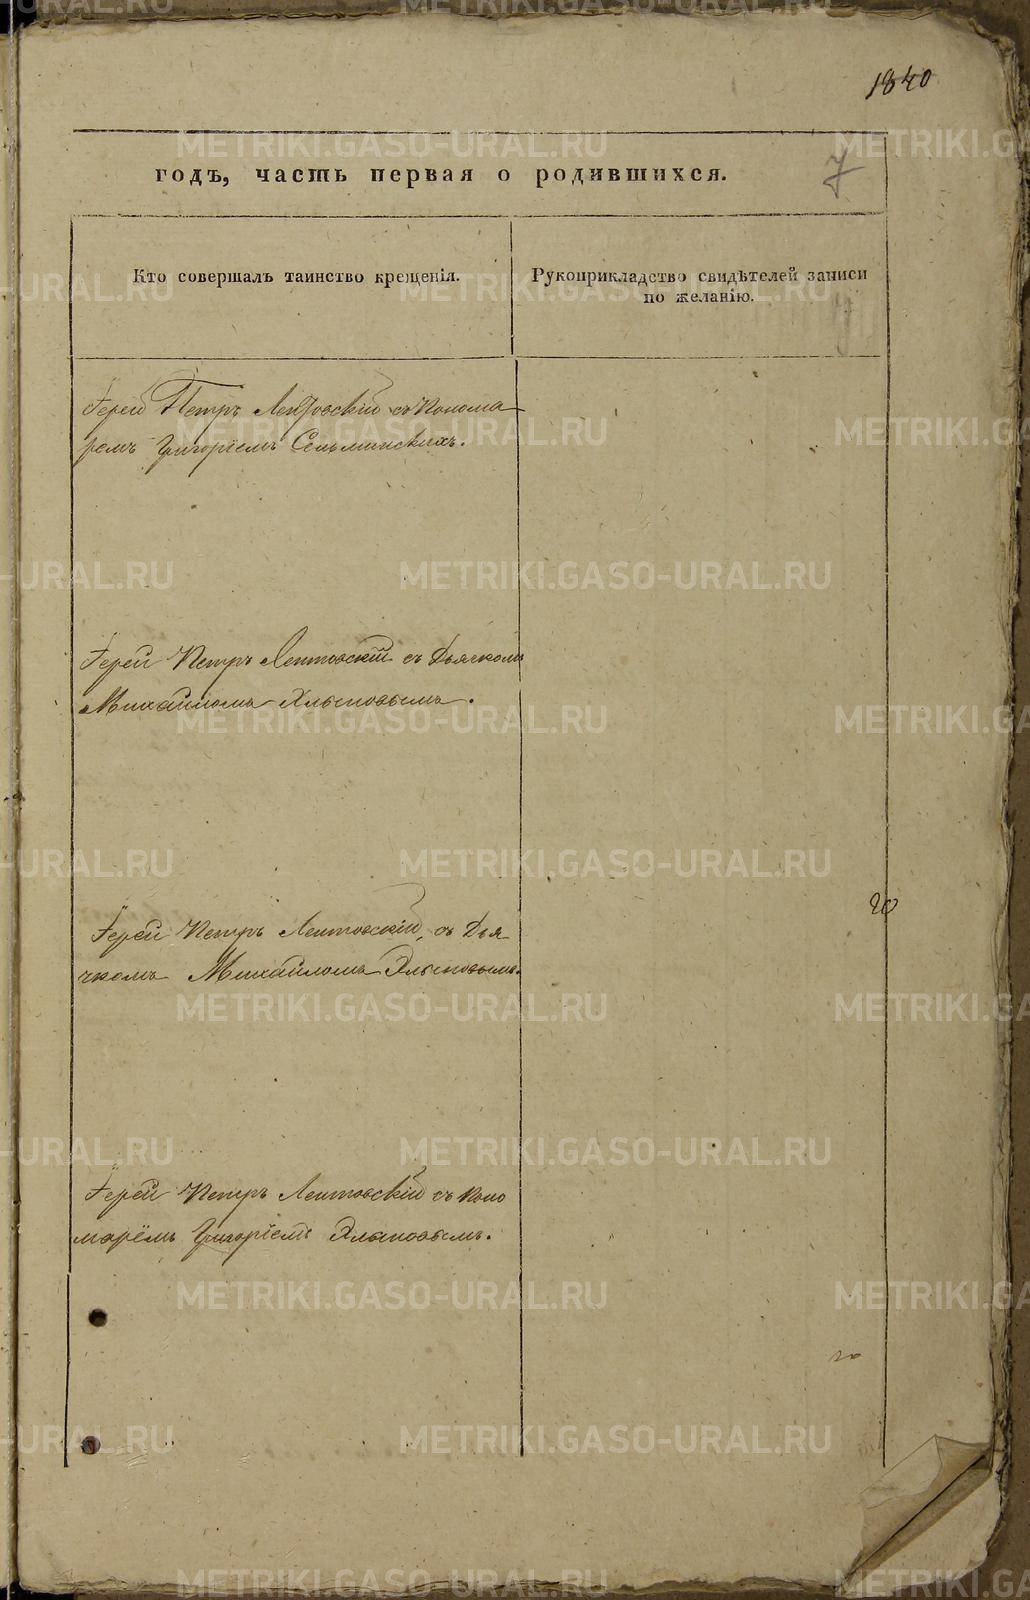 1840
годъ, часть первая о родившихся.
7
Кто совершалъ таинство крещенія.
Рукоприкладство свидѣтелей записи
по желанію.
Іерей Петръ Лептовскій съ Понома
ремъ Григоріемъ
Іерей Петръ Лептовскій съ Дьячкомъ
Михайломъ Хлыновымъ.
Іерей Петръ Лептовскій, съ Дья
чкомъ Михайломъ Хлыновымъ.
Іерей Петръ Лептовскій съ Поно
марёмъ Григоріемъ Хлыновымъ.
METRIKI.GASO-URAL.RU